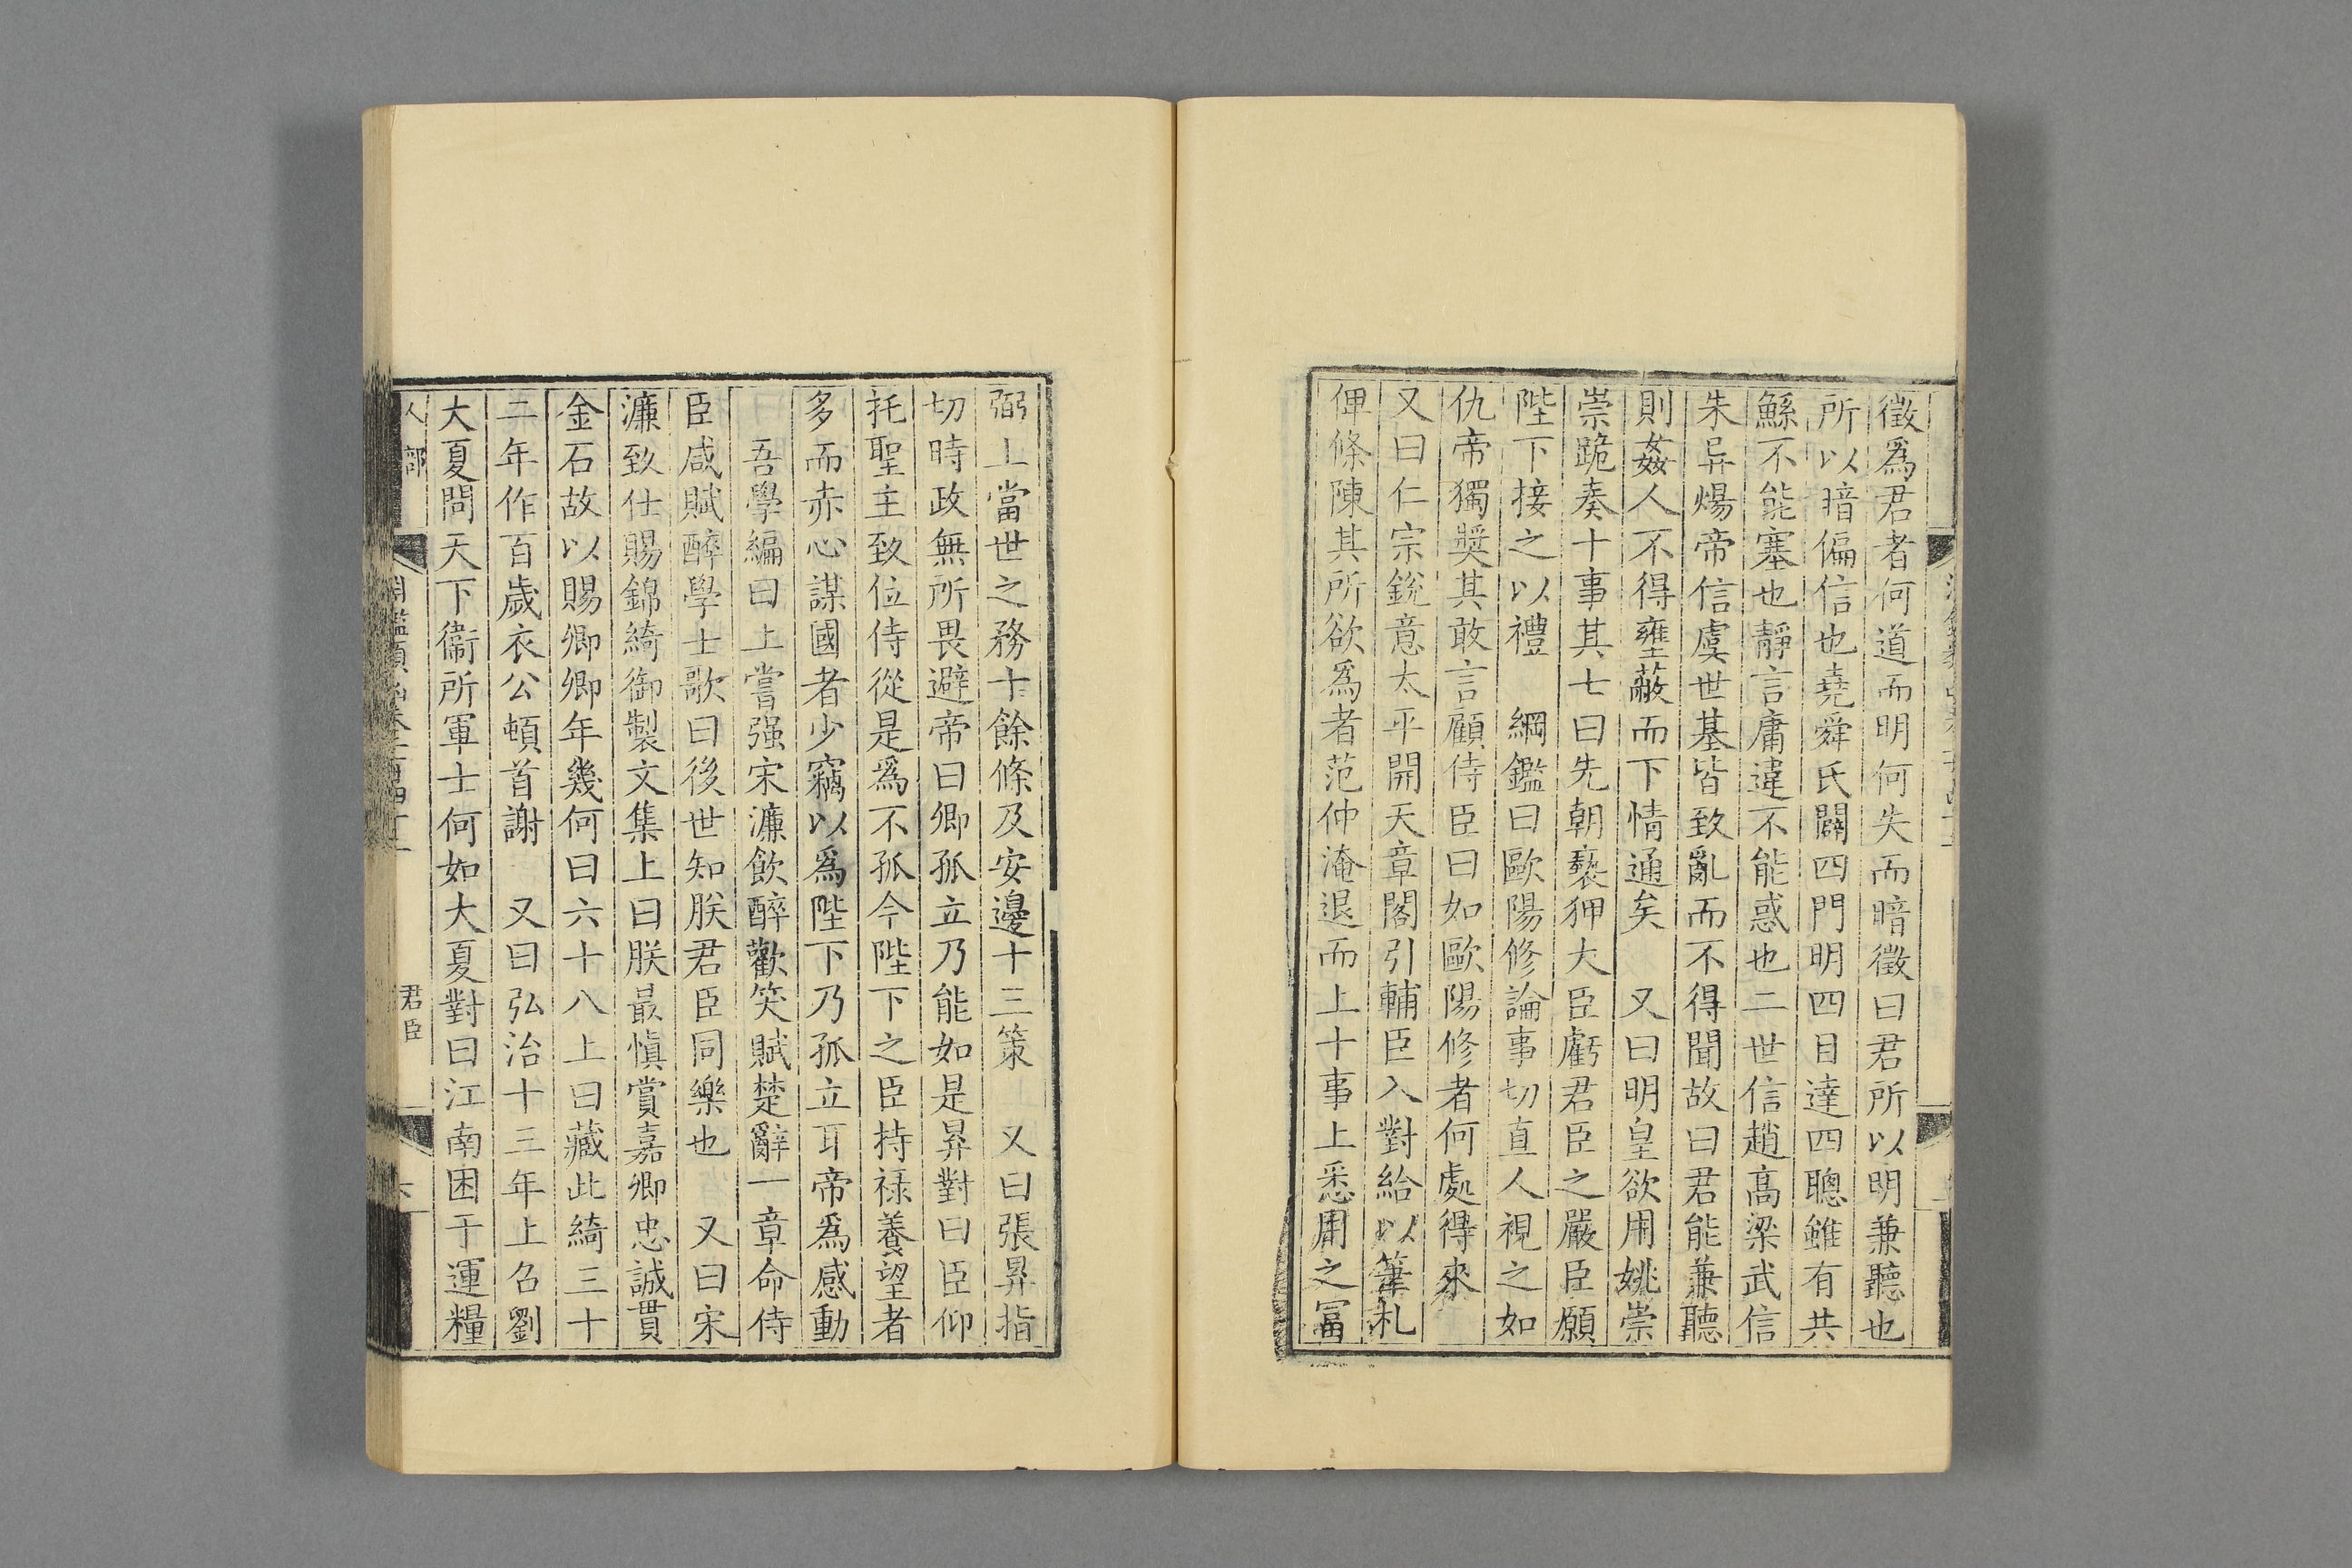 徵爲君者何道而明何失而暗徵曰君所以明兼聽也
所以暗偏信也堯舜氏闢四門明四目達四聰雖有共
鯀不能塞也靜言庸違不能惑也二世信趙高梁武信
朱异煬帝信虞世基皆致亂而不得聞故曰君能兼聽
則姦人不得壅蔽而下情通矣　又曰明皇欲用姚崇
崇跪奏十事其七曰先朝褻狎大臣虧君臣之嚴臣願
陛下接之以禮　綱鑑曰歐陽修論事切直人視之如
仇帝獨奬其敢言顧侍臣曰如歐陽修者何處得來
又曰仁宗銳意太平開天章閣引輔臣入對給以筆札
俾條陳其所欲爲者范仲淹退而上十事上悉用之富
弼上當世之務十餘條及安邊十三策　又曰張昇指
切時政無所畏避帝曰卿孤立乃能如是昇對曰臣仰
托聖主致位侍從是爲不孤今陛下之臣持祿養望者
多而赤心謀國者少竊以爲陛下乃孤立耳帝爲感動
吾學編曰上嘗强宋濂飲醉歡笑賦楚辭一章命侍
臣咸賦醉學士歌曰後世知朕君臣同樂也　又曰宋
濂致仕賜錦綺御製文集上曰朕最愼賞嘉卿忠誠貫
金石故以賜卿卿年幾何曰六十八上曰藏此綺三十
二年作百歲衣公頓首謝　又曰弘治十三年上召劉
大夏問天下衞所軍士何如大夏對曰江南困于運糧
人部　淵鑑類函卷二百四十二　君臣　六